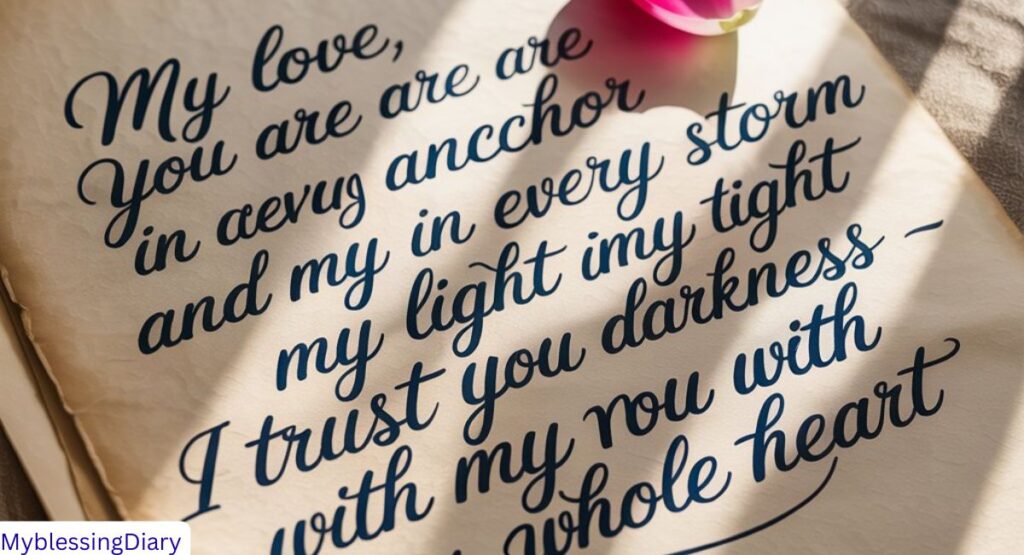 My love,
You are are are
in aevug anccchor
and my in every storm
my light imy tight
I trust you darkness –
with my rou with
whole heart
MyblessingDiary